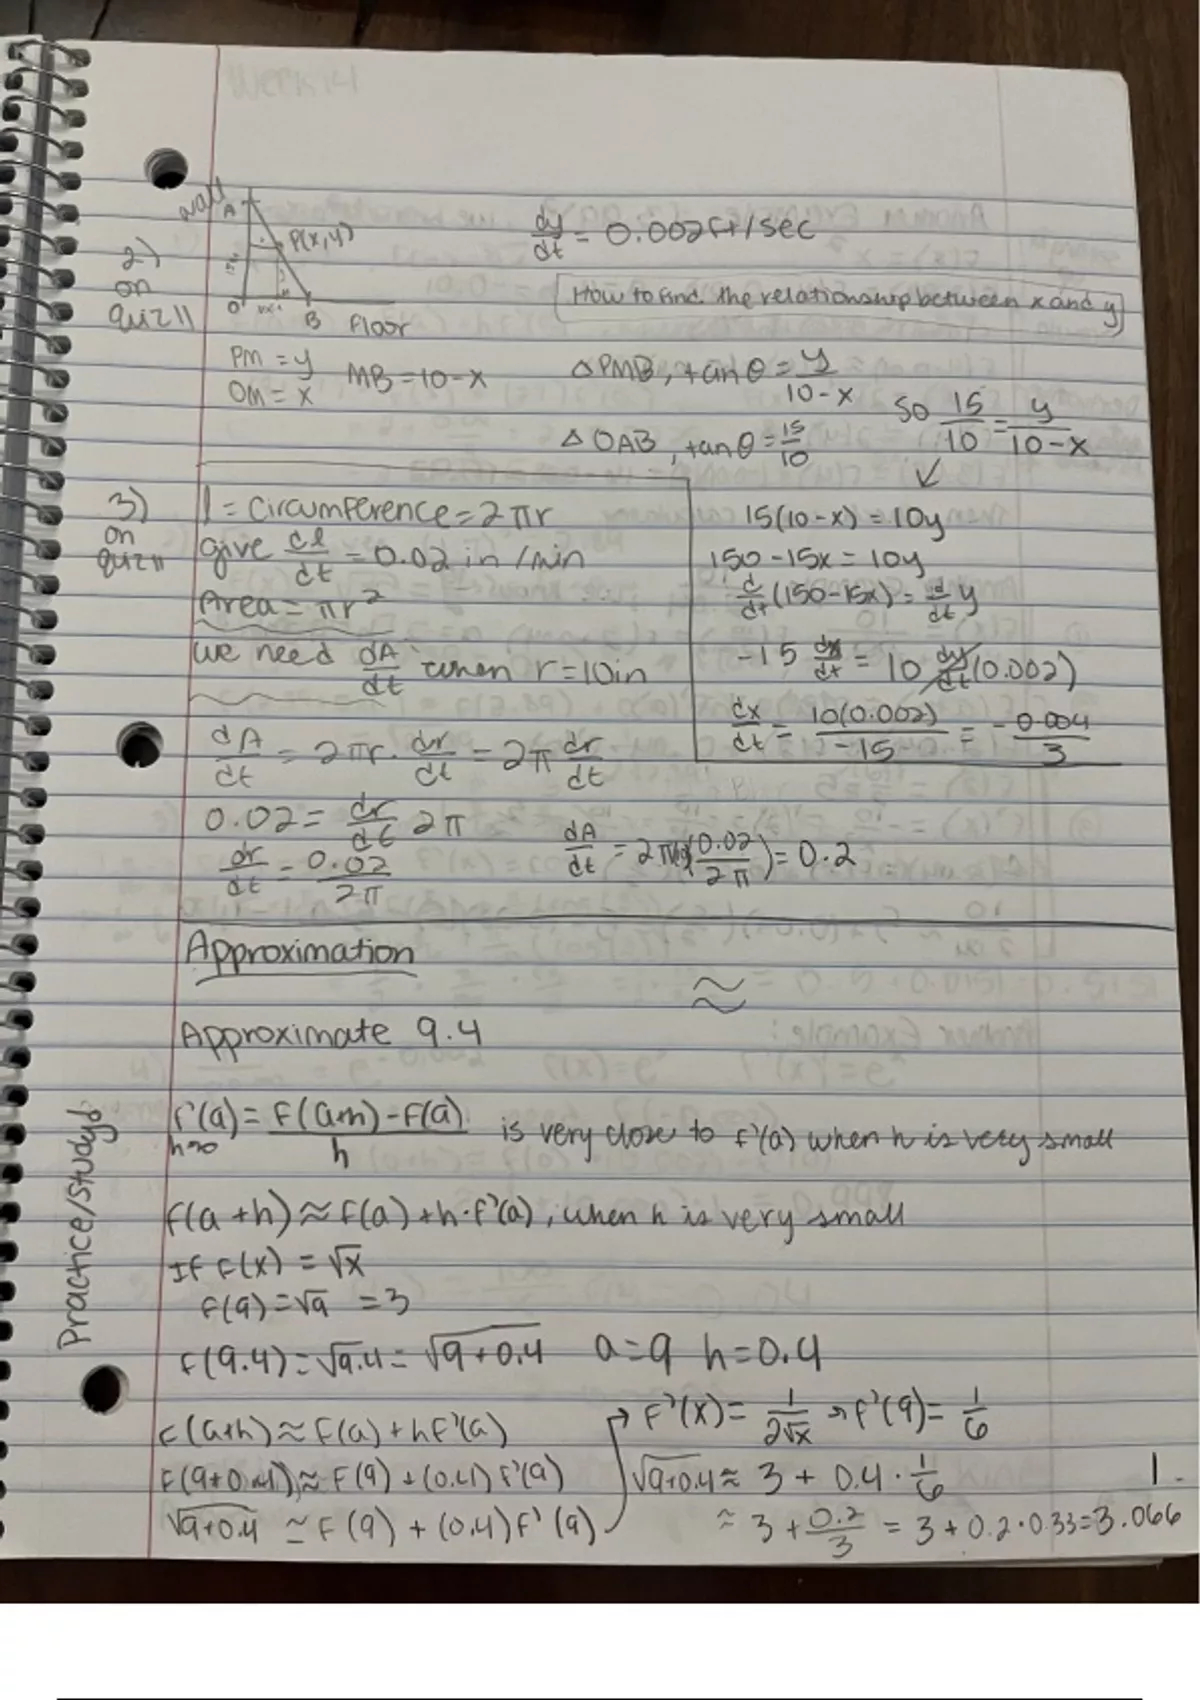 Week 14
wall
A
P(x,y)
O
B floor
2) on quiz 11
dy/dt = 0.002 ft/sec
How to find the relationship between x and y
PM = y
OM = x
MB = 10-x
△PMB, tan θ = y/10-x
△OAB, tan θ = 15/10
So 15/10 = y/10-x
↙
15(10-x) = 10y
150-15x = 10y
d/dt (150-15x) = d/dt y
-15 dx/dt = 10 dy/dt (0.002)
dx/dt = 10(0.002)/-15 = -0.004/3
3) on quiz 11
l = circumference = 2πr
give dl/dt = 0.02 in/min
Area = πr²
we need dA/dt when r = 10in
dA/dt = 2πr · dr/dt = 2π dr/dt
0.02 = dr/dt 2π
dr/dt = 0.02/2π
dA/dt = 2π10(0.02/2π) = 0.2
Approximation
≈
Approximate 9.4
Practice/Study
f'(a) = f(a+h)-f(a)/h is very close to f'(a) when h is very small
h→0
f(a+h) ≈ f(a)+h·f'(a), when h is very small
If f(x) = √x
f(9) = √9 = 3
f(9.4) = √9.4 = √9+0.4 a=9 h=0.4
f(a+h) ≈ f(a)+hf'(a)
f(9+0.4) ≈ f(9)+(0.4)f'(9)
√9+0.4 ≃ f(9)+(0.4)f'(9)
f'(x) = 1/2√x → f'(9) = 1/6
√9+0.4 ≈ 3+0.4·1/6
≈ 3+0.2/3 = 3+0.2·0.33=3.066
1.